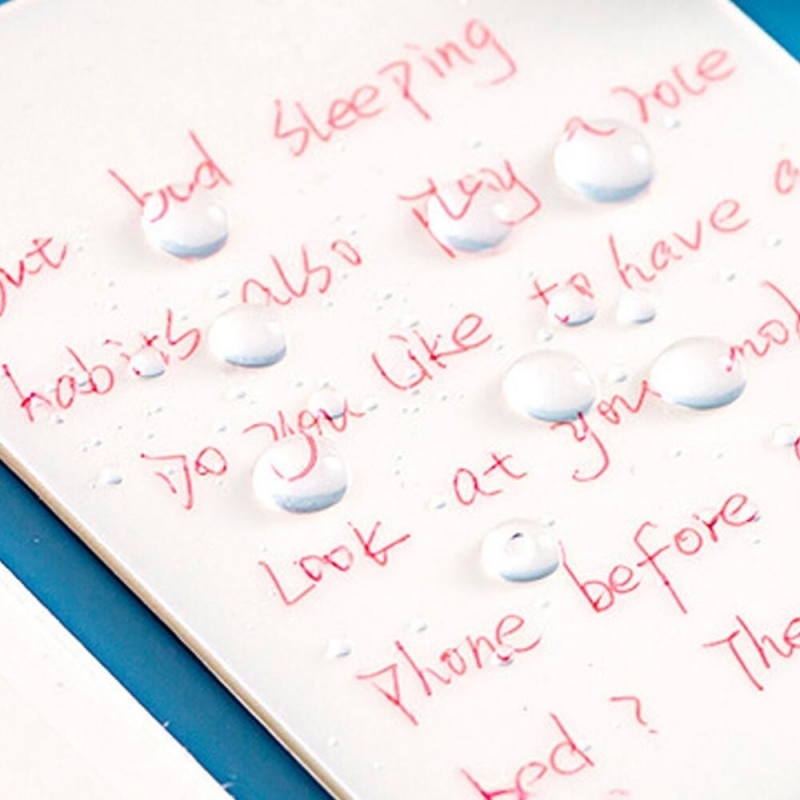 but bad sleeping
habits also play a role
Do you like to have a
Look at you mob
Phone before
bed? The